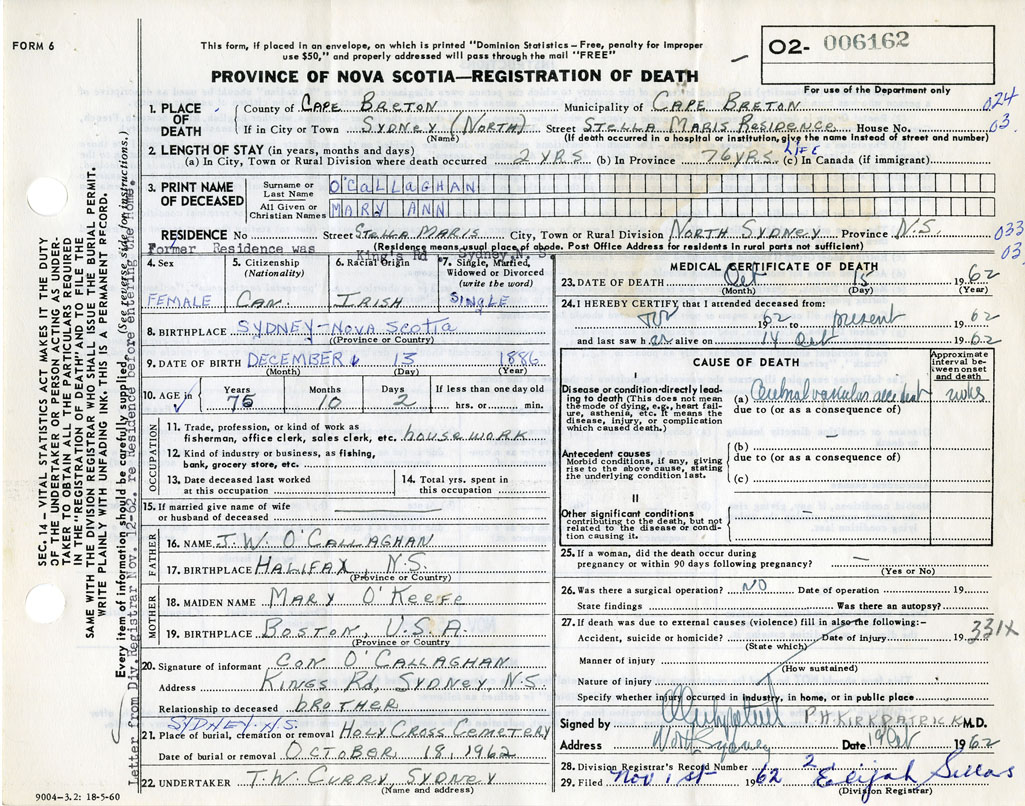 FORM 6
This form, if placed in an envelope, on which is printed "Dominion Statistics – Free, penalty for improper
use $50," and properly addressed will pass through the mail "FREE"
O2- 006162
PROVINCE OF NOVA SCOTIA—REGISTRATION OF DEATH
For use of the Department only
1. PLACE OF DEATH County of CAPE BRETON Municipality of CAPE BRETON 024
If in City or Town SYDNEY (NORTH) Street STELLA MARIS RESIDENCE House No. 03
(Name) (If death occurred in a hospital or institution, give its name, instead of street and number)
2. LENGTH OF STAY (in years, months and days) LIFE
(a) In City, Town or Rural Division where death occurred 2 YRS (b) In Province 76 YRS. (c) In Canada (if immigrant)
3. PRINT NAME OF DECEASED Surname or Last Name O'CALLAGHAN
All Given or Christian Names MARY ANN
RESIDENCE No Street STELLA MARIS City, Town or Rural Division NORTH SYDNEY Province N.S. 033
Former Residence was King's Rd Sydney N. S. (Residence means usual place of abode. Post Office Address for residents in rural parts not sufficient) 03
4. Sex 5. Citizenship (Nationality) 6. Racial Origin *7. Single, Married, Widowed or Divorced (write the word)
FEMALE CAN. IRISH SINGLE
8. BIRTHPLACE SYDNEY - NOVA SCOTIA
(Province or Country)
9. DATE OF BIRTH DECEMBER 13 1886
(Month) (Day) (Year)
10. AGE in Years Months Days If less than one day old
75 10 2 hrs. or min.
OCCUPATION
11. Trade, profession, or kind of work as
fisherman, office clerk, sales clerk, etc. housework
12. Kind of industry or business, as fishing,
bank, grocery store, etc.
13. Date deceased last worked at this occupation
14. Total yrs. spent in this occupation
15. If married give name of wife
or husband of deceased
FATHER
16. NAME J. W. O'CALLAGHAN
17. BIRTHPLACE HALIFAX, N.S.
(Province or Country)
MOTHER
18. MAIDEN NAME MARY O'KEEFE
19. BIRTHPLACE BOSTON, U.S.A.
(Province or Country)
20. Signature of informant CON O'CALLAGHAN
Address KINGS Rd, SYDNEY N.S
Relationship to deceased BROTHER
SYDNEY. N.S.
21. Place of burial, cremation or removal HOLY CROSS CEMETERY
Date of burial or removal OCTOBER 18, 1962
22. UNDERTAKER T. W. CURRY, SYDNEY
(Name and address)
9004-3.2: 18-5-60
MEDICAL CERTIFICATE OF DEATH
23. DATE OF DEATH Oct 15 1962
(Month) (Day) (Year)
24. I HEREBY CERTIFY that I attended deceased from:
1962 to present 1962
and last saw her alive on 14 Oct 1962
CAUSE OF DEATH
Approximate interval between onset and death
I
Disease or condition directly leading to death (This does not mean the mode of dying, e.g., heart failure, asthenia, etc. It means the disease, injury, or complication which caused death.)
(a) Cerebral vascular accident
due to (or as a consequence of)
Antecedent causes
Morbid conditions, if any, giving rise to the above cause, stating the underlying condition last.
(b) —
due to (or as a consequence of)
(c)
II
Other significant conditions
contributing to the death, but not related to the disease or condition causing it.
25. If a woman, did the death occur during
pregnancy or within 90 days following pregnancy? —
(Yes or No)
26. Was there a surgical operation? NO Date of operation 19
State findings Was there an autopsy?
27. If death was due to external causes (violence) fill in also the following:- 331X
Accident, suicide or homicide? Date of injury 19
(State which)
Manner of injury
(How sustained)
Nature of injury
Specify whether injury occurred in industry, in home, or in public place
Signed by P.H. KIRKPATRICK M.D.
Address North Sydney Date 19 Oct 1962
28. Division Registrar's Record Number 2
29. Filed Nov 1st 1962 Elijah Sillas
(Division Registrar)
SEC. 14 – VITAL STATISTICS ACT MAKES IT THE DUTY
OF THE UNDERTAKER OR PERSON ACTING AS UNDER-
TAKER TO OBTAIN ALL THE PARTICULARS REQUIRED
IN THE "REGISTRATION OF DEATH" AND TO FILE THE
SAME WITH THE DIVISION REGISTRAR WHO SHALL ISSUE THE BURIAL PERMIT.
WRITE PLAINLY WITH UNFADING INK. THIS IS A PERMANENT RECORD.
Every item of information should be carefully supplied. (See reverse side for instructions.)
Letter from Div. Registrar Nov. 12-62. re residence before entering the home.